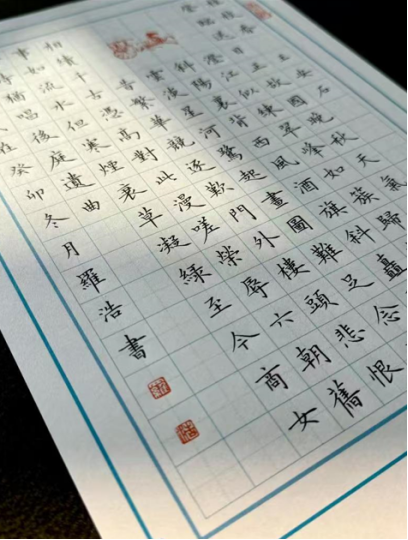 桂枝香 王安石
登臨送目正故國晚秋天氣
澄江似練翠峰如簇歸
斜陽裏背西風酒旗斜矗
雲淡星河鷺起畫圖難足念
昔繁華競逐歎門外樓頭悲恨
相續千古憑高對此漫嗟榮辱六朝舊
事如流水但寒煙衰草凝綠至今商女
猶唱後庭遺曲
癸卯冬月羅浩書